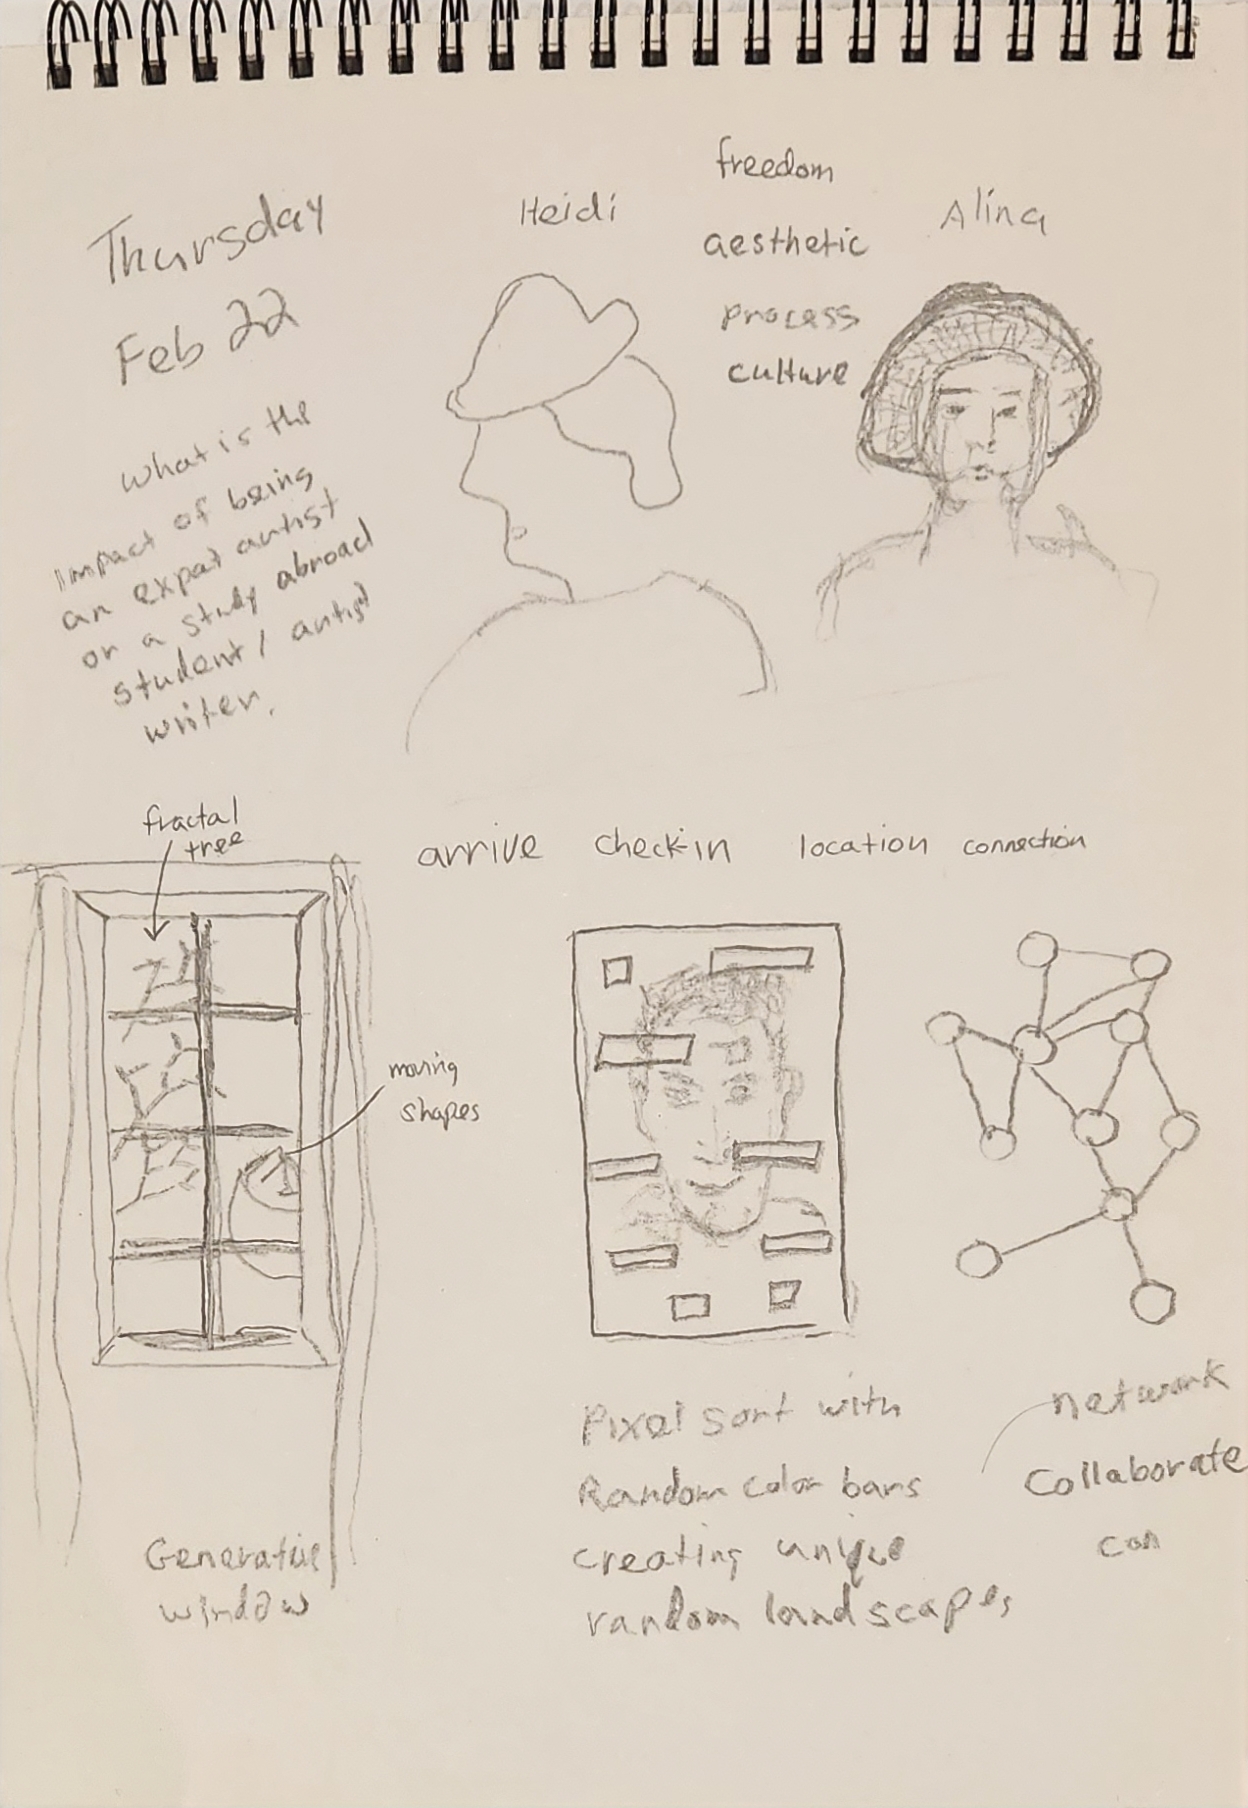 Thursday
Feb 22
What is the
impact of being
an expat artist
or a study abroad
student/artist
writer.
Heidi
freedom
aesthetic
process
culture
Alina
fractal
tree
moving
shapes
Generative
window
arrive check-in location connection
Pixel sort with
Random color bars
creating unique
random landscapes
network
Collaborate
con